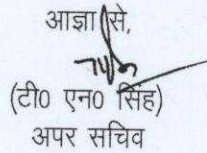 आज्ञा से,
(टी0 एन0 सिंह)
अपर सचिव